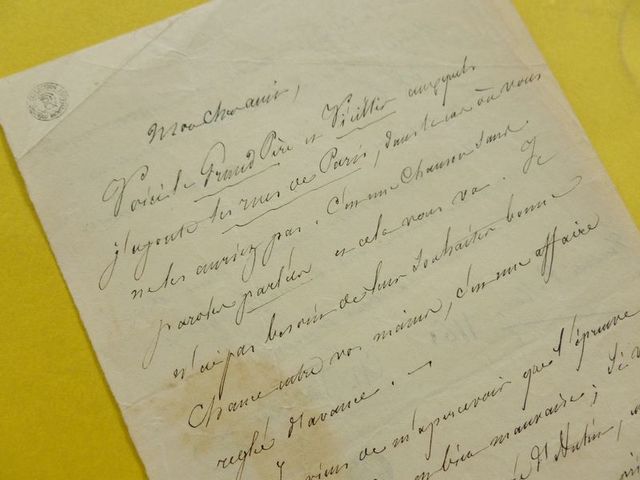 Mon cher ami,
Voici le Grand Père et Vieillir auxquels
j'ajoute les rues de Paris, dans le cas où vous
ne les auriez pas. C'est une Chanson sans
paroles parlées et cela vous va. Je
n'ai pas besoin de leur souhaiter bonne
Chance entre vos mains, c'est une affaire
reglée d'avance. —
Je viens de m'apercevoir que l'épreuve
en bien mauvaise; Si v
d'Antin,